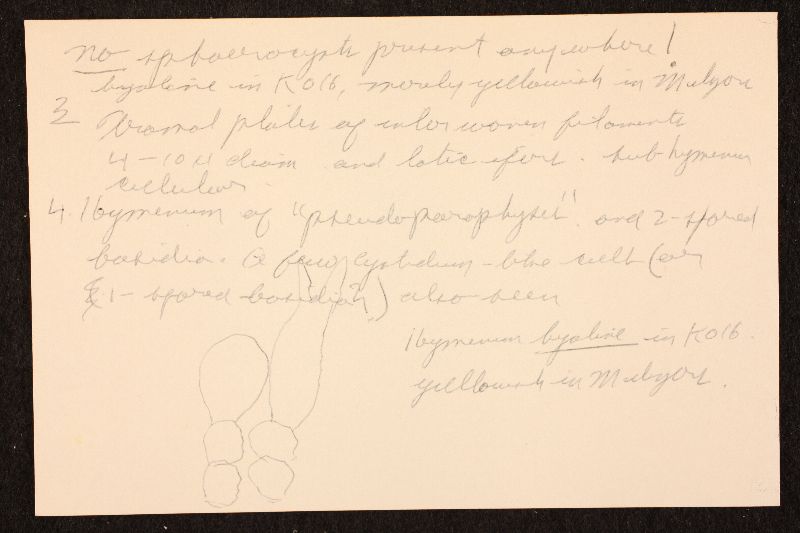 no sphaerocysts present anywhere!
hyaline in KOH, merely yellowish in Melzers
3 Tramal plates of interwoven filaments
4-10 µ diam and laticifers. subhymenium
cellular.
4. Hymenium of "pseudoparaphyses" and 2-spored
basidia. A few cystidium-like cells (or
1-spored basidia?) also seen
Hymenium hyaline in KOH.
yellowish in Melzers.